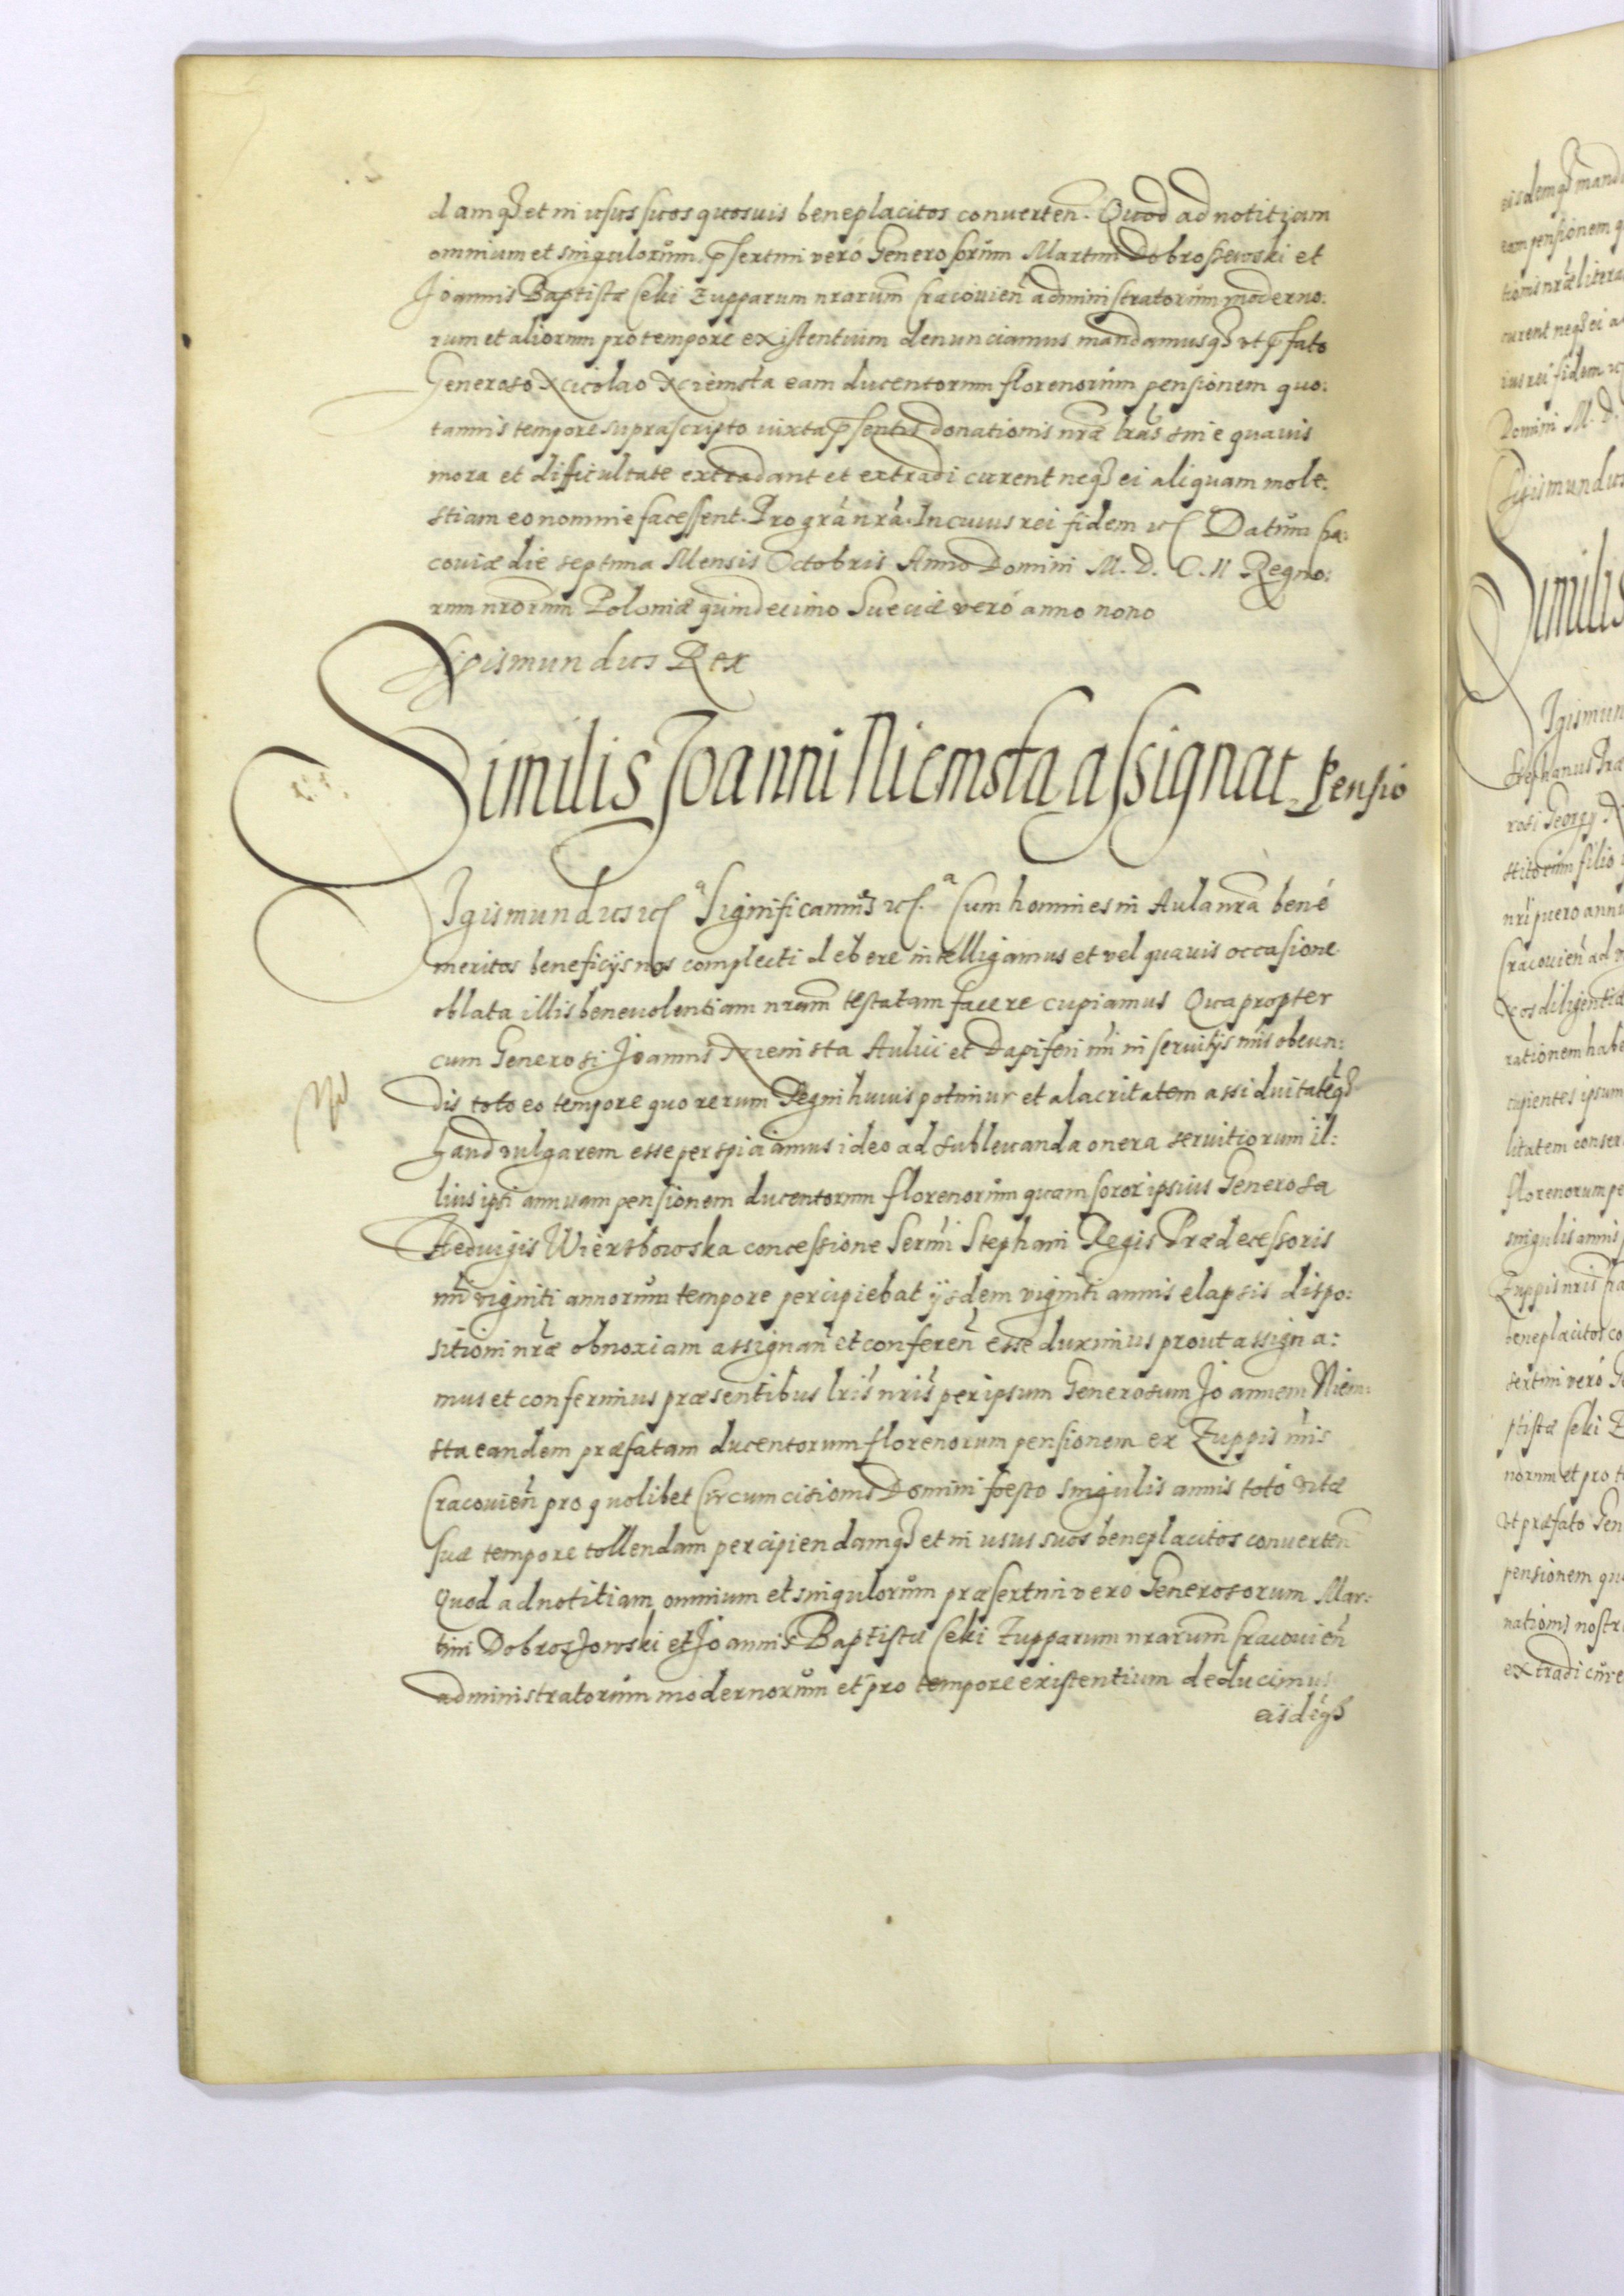 damqȝ et in usus suos quosuis beneplacitos conuerten̄. Quod ad notitiam
omnium et singulorum, p̄sertim veró Generosorum Martini Dobroszewski et
Joannis Baptistæ Ceki Zupparum nrarum̄ Cracouien̄ administratorum moderno:
rum et aliorum pro tempore existentium denunciamus mandamusqȝ vt p̄fato
Generoso Nicolao Niemsta eam ducentorum florenorum pensionem quo:
tannis tempore suprascripto iuxta p̄sentis donationis nr̄æ lrās sine quauis
mora et difficultate extradant et extradi curent neqȝ ei aliquam mole:
stiam eo nomine facessent. Pro grā nrā. In cuius rei fidem etc Datum Cra:
couiæ die septima Mensis Octobris Anno Domini M. D. C. II Regno:
rum nrorum Poloniæ quindecimo Sueciæ veró anno nono
Sigismundus Rex
Similis Joanni Niemsta assignat. Pensio
Sigismundus etc Significamus etc. Cum homines in Aula nrā bené
meritos beneficijs nos complecti debere intelligamus et vel quauis occasione
oblata illis beneuolentiam nram̄ testatam facere cupiamus Quapropter
cum Generosi Joannis Niemsta Aulici et Dapiferi nri in seruitijs nris obeun:
dis toto eo tempore quo rerum Regni huius potimur et alacritatem assiduitatēqȝ
haud vulgarem esse perspiciamus ideo ad subleuanda onera seruitiorum il:
lius ipsi annuam pensionem ducentorum florenorum quam soror ipsius Generosa
Heduigis Wierzbowska concessione Sermi Stephani Regis Prædecessoris
nri viginti annorum tempore percipiebat ijsdem viginti annis elapsis dispo:
sitioni nr̄æ obnoxiam assignan̄ et conferen̄ esse duximus prout assigna:
mus et conferimus præsentibus lris nris per ipsum Generosum Joannem Niem:
sta eandem præfatam ducentorum florenorum pensionem ex Zuppis nris
Cracouien̄ pro quolibet Circumcisionis Domini foesto singulis annis toto vitæ
suæ tempore tollendam percipiendamqȝ et in usus suos beneplacitos conuerten̄
Quod ad notitiam omnium et singulorum præsertim veró Generosorum Mar:
tini Dobroszowski et Joannis Baptistæ Ceki Zupparum nrarum̄ Cracouien̄
administratorum modernorum et pro tempore existentium deducimus
eisdēqȝ